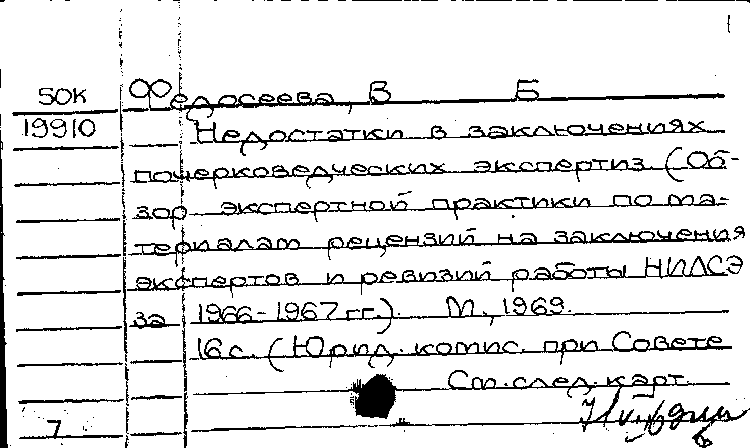 1
50К Федосеева, В Б
19910 Недостатки в заключениях
почерковедческих экспертиз (Об-
зор экспертной практики по ма-
териалам рецензий на заключения
экспертов и ревизий работы НИЛСЭ
за 1966-1967 гг.). М., 1969.
16 с. (Юрид. комис. при Совете
См. след. карт.
7